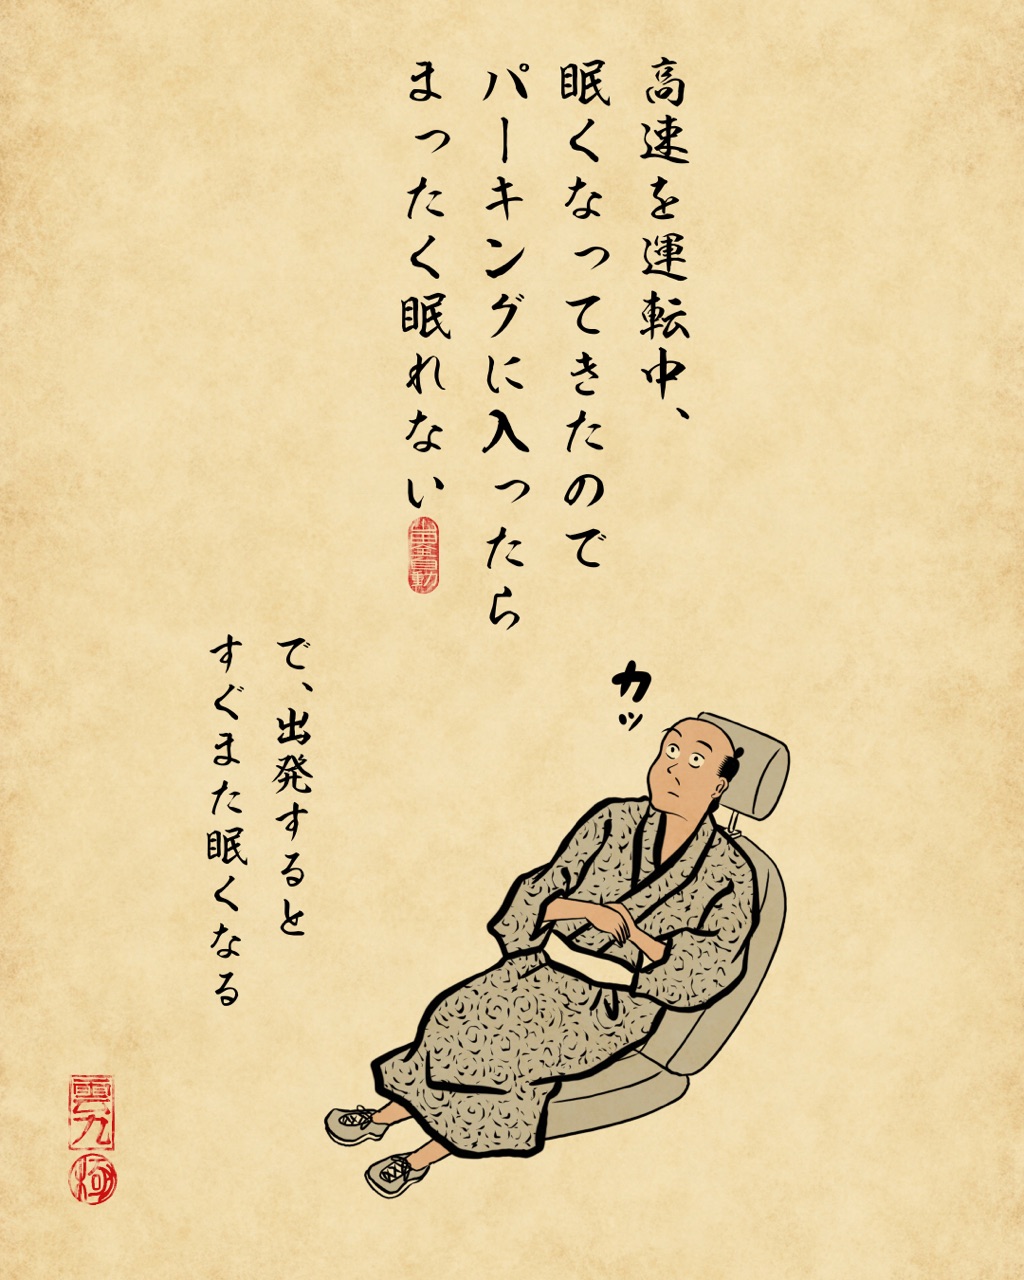 高速を運転中、
眠くなってきたので
パーキングに入ったら
まったく眠れない
で、出発すると
すぐまた眠くなる
カッ